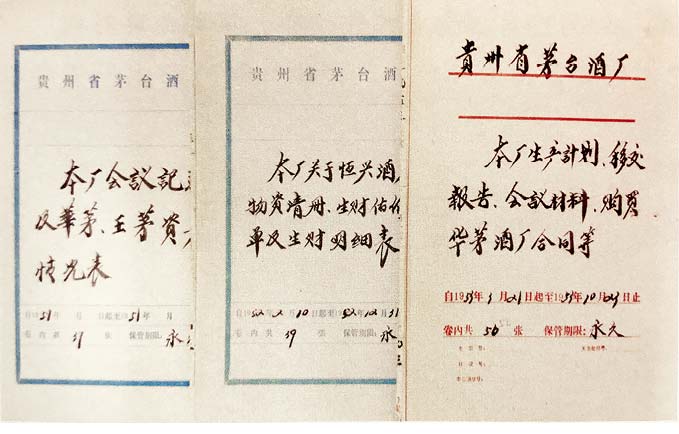 貴州省茅台酒
本厂会议記
及華茅、王茅資
情况表
自1951年 月 日起至1951年 月
卷内共 31 张 保管期限: 永
貴州省茅台酒
本厂关于恒兴酒
物资清册、生财估价
单及生财明细表
自1952年2月10日起至1952年12月31
卷内共 39 张 保管期限: 永
貴州省茅台酒厂
本厂生产計划、移交
報告、会议材料、购買
华茅酒厂合同等
自1951年 月21日起至1951年10月29日止
卷内共 56 张 保管期限: 永久
全宗号:
目录号:
案卷顺序号: